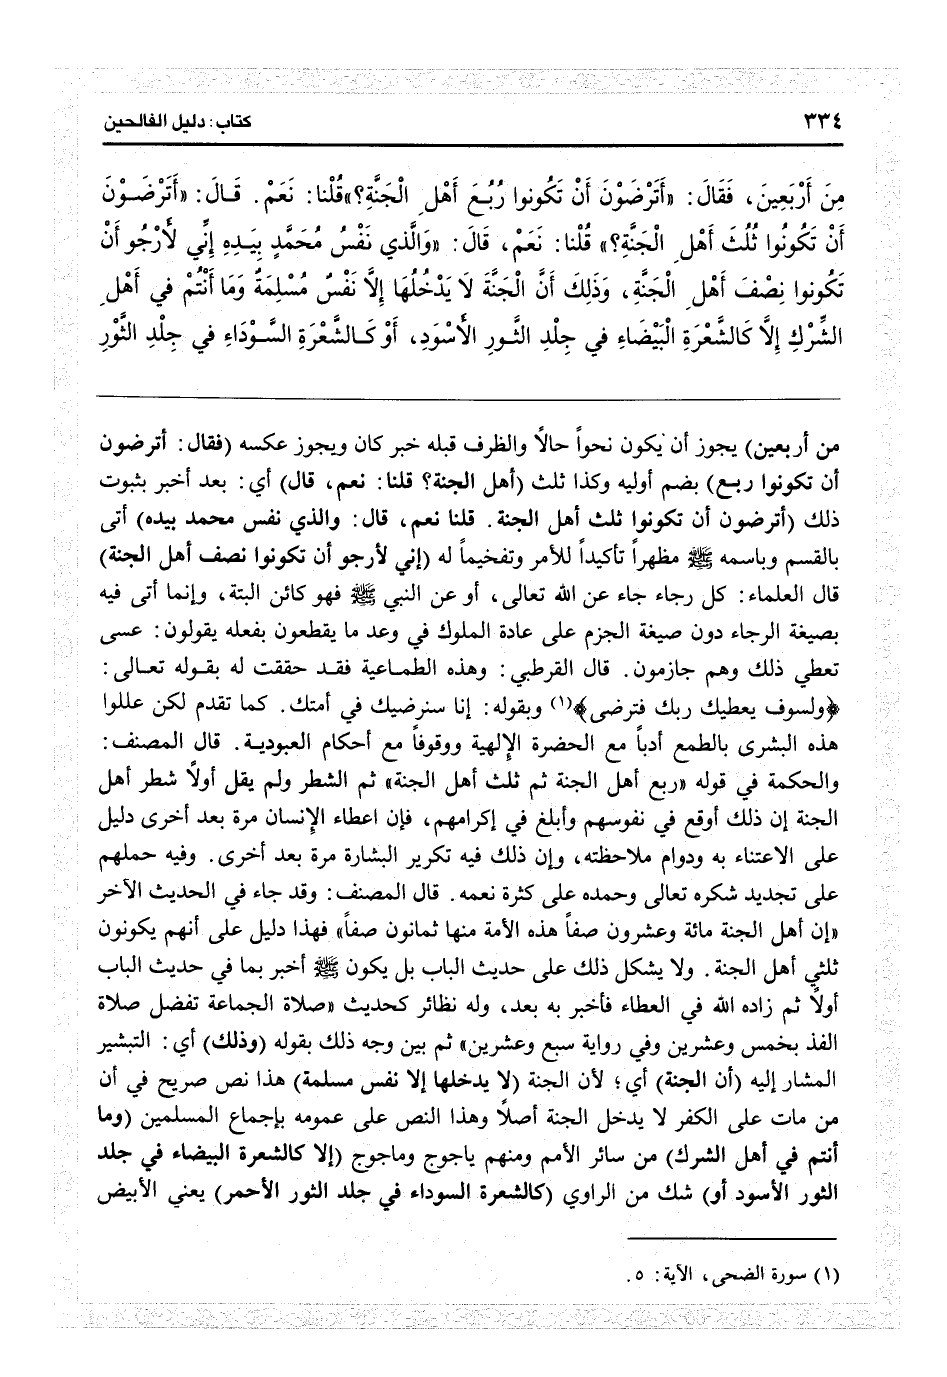 ٣٣٤
كتاب: دليل الفالحين
مِنَ أَرْبَعِينَ، فَقَالَ: «أَتَرْضَوْنَ أَنْ تَكُونوا رُبُعَ أَهْلِ الْجَنَّةِ؟» قُلْنا: نَعَمْ. قَـالَ: «أَتَرْضَـوْنَ
أَنْ تَكُونُوا ثُلُثَ أَهْلِ الْجَنَّةِ؟» قُلْنا: نَعَمْ، قَالَ: «وَالَّذي نَفْسُ مُحَمَّدٍ بِيَدِهِ إِنِّي لأَرْجُو أَنْ
تَكُونوا نِصْفَ أَهْلِ الْجَنَّةِ، وَذَلِكَ أَنَّ الْجَنَّةَ لَا يَدْخُلُهَا إِلَّا نَفْسٌ مُسْلِمَةٌ وَمَا أَنْتُمْ في أَهْلِ
الشِّرْكِ إِلَّا كَالشَّعْرَةِ الْبَيْضَاءِ في جِلْدِ الثَّـورِ الأَسْوَدِ، أَوْ كَـالشَّعْرَةِ السَّـوْدَاءِ في جِلْدِ الثَّوْرِ
من أربعين) يجوز أن يكون نحواً حالاً والظرف قبله خبر كان ويجوز عكسه (فقال: أترضون
أن تكونوا ربـع) بضم أوليه وكذا ثلث (أهل الجنة؟ قلنا: نعم، قال) أي: بعد أخبر بثبوت
ذلك (أترضون أن تكونوا ثلث أهل الجنة. قلنا نعم، قال: والذي نفس محمد بيده) أتى
بالقسم وباسمه ﷺ مظهراً تأكيداً للأمر وتفخيماً له (إني لأرجو أن تكونوا نصف أهل الجنة)
قال العلماء: كل رجاء جاء عن الله تعالى، أو عن النبي ﷺ فهو كائن البتة، وإنما أتى فيه
بصيغة الرجاء دون صيغة الجزم على عادة الملوك في وعد ما يقطعون بفعله يقولون: عسى
تعطي ذلك وهم جازمون. قال القرطبي: وهذه الطمـاعية فقـد حققت له بقـوله تعـالى:
﴿ولسوف يعطيك ربك فترضى﴾(١) وبقوله: إنا سنرضيك في أمتك. كما تقدم لكن عللوا
هذه البشرى بالطمع أدباً مع الحضرة الإلهية ووقوفاً مع أحكام العبودية. قال المصنف:
والحكمة في قوله «ربع أهل الجنة ثم ثلث أهل الجنة» ثم الشطر ولم يقل أولاً شطر أهل
الجنة إن ذلك أوقع في نفوسهم وأبلغ في إكرامهم، فإن اعطاء الإنسان مرة بعد أخرى دليل
على الاعتناء به ودوام ملاحظته، وإن ذلك فيه تكرير البشارة مرة بعد أخرى. وفيه حملهم
على تجديد شكره تعالى وحمده على كثرة نعمه. قال المصنف: وقد جاء في الحديث الآخر
«إن أهل الجنة مائة وعشرون صفاً هذه الأمة منها ثمانون صفاً» فهذا دليل على أنهم يكونون
ثلثي أهل الجنة. ولا يشكل ذلك على حديث الباب بل يكون ﷺ أخبر بما في حديث الباب
أولاً ثم زاده الله في العطاء فأخبر به بعد، وله نظائر كحديث «صلاة الجماعة تفضل صلاة
الفذ بخمس وعشرين وفي رواية سبع وعشرين» ثم بين وجه ذلك بقوله (وذلك) أي: التبشير
المشار إليه (أن الجنة) أي؛ لأن الجنة (لا يدخلها إلا نفس مسلمة) هذا نص صريح في أن
من مات على الكفر لا يدخل الجنة أصلاً وهذا النص على عمومه بإجماع المسلمين (وما
أنتم في أهل الشرك) من سائر الأمم ومنهم ياجوج وماجوج (إلا كالشعرة البيضاء في جلد
الثور الأسود أو) شك من الراوي (كالشعرة السوداء في جلد الثور الأحمر) يعني الأبيض
(١) سورة الضحى، الآية: ٥.